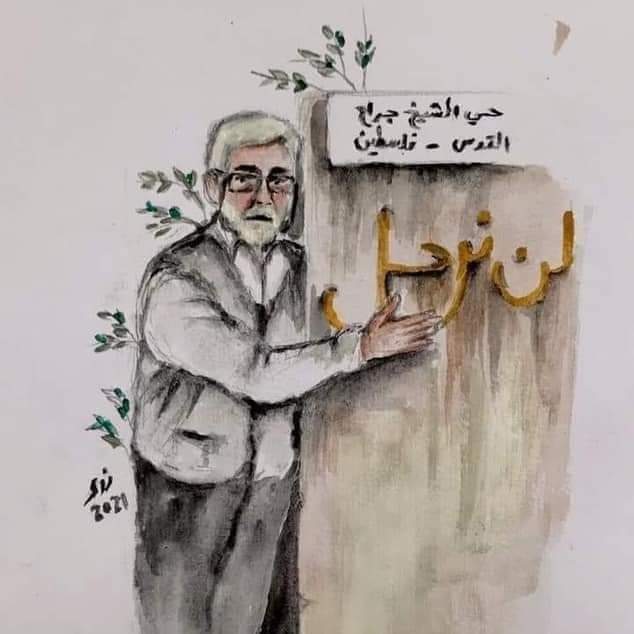 حي الشيخ جراح
القدس - فلسطين
لن نرحل
2021